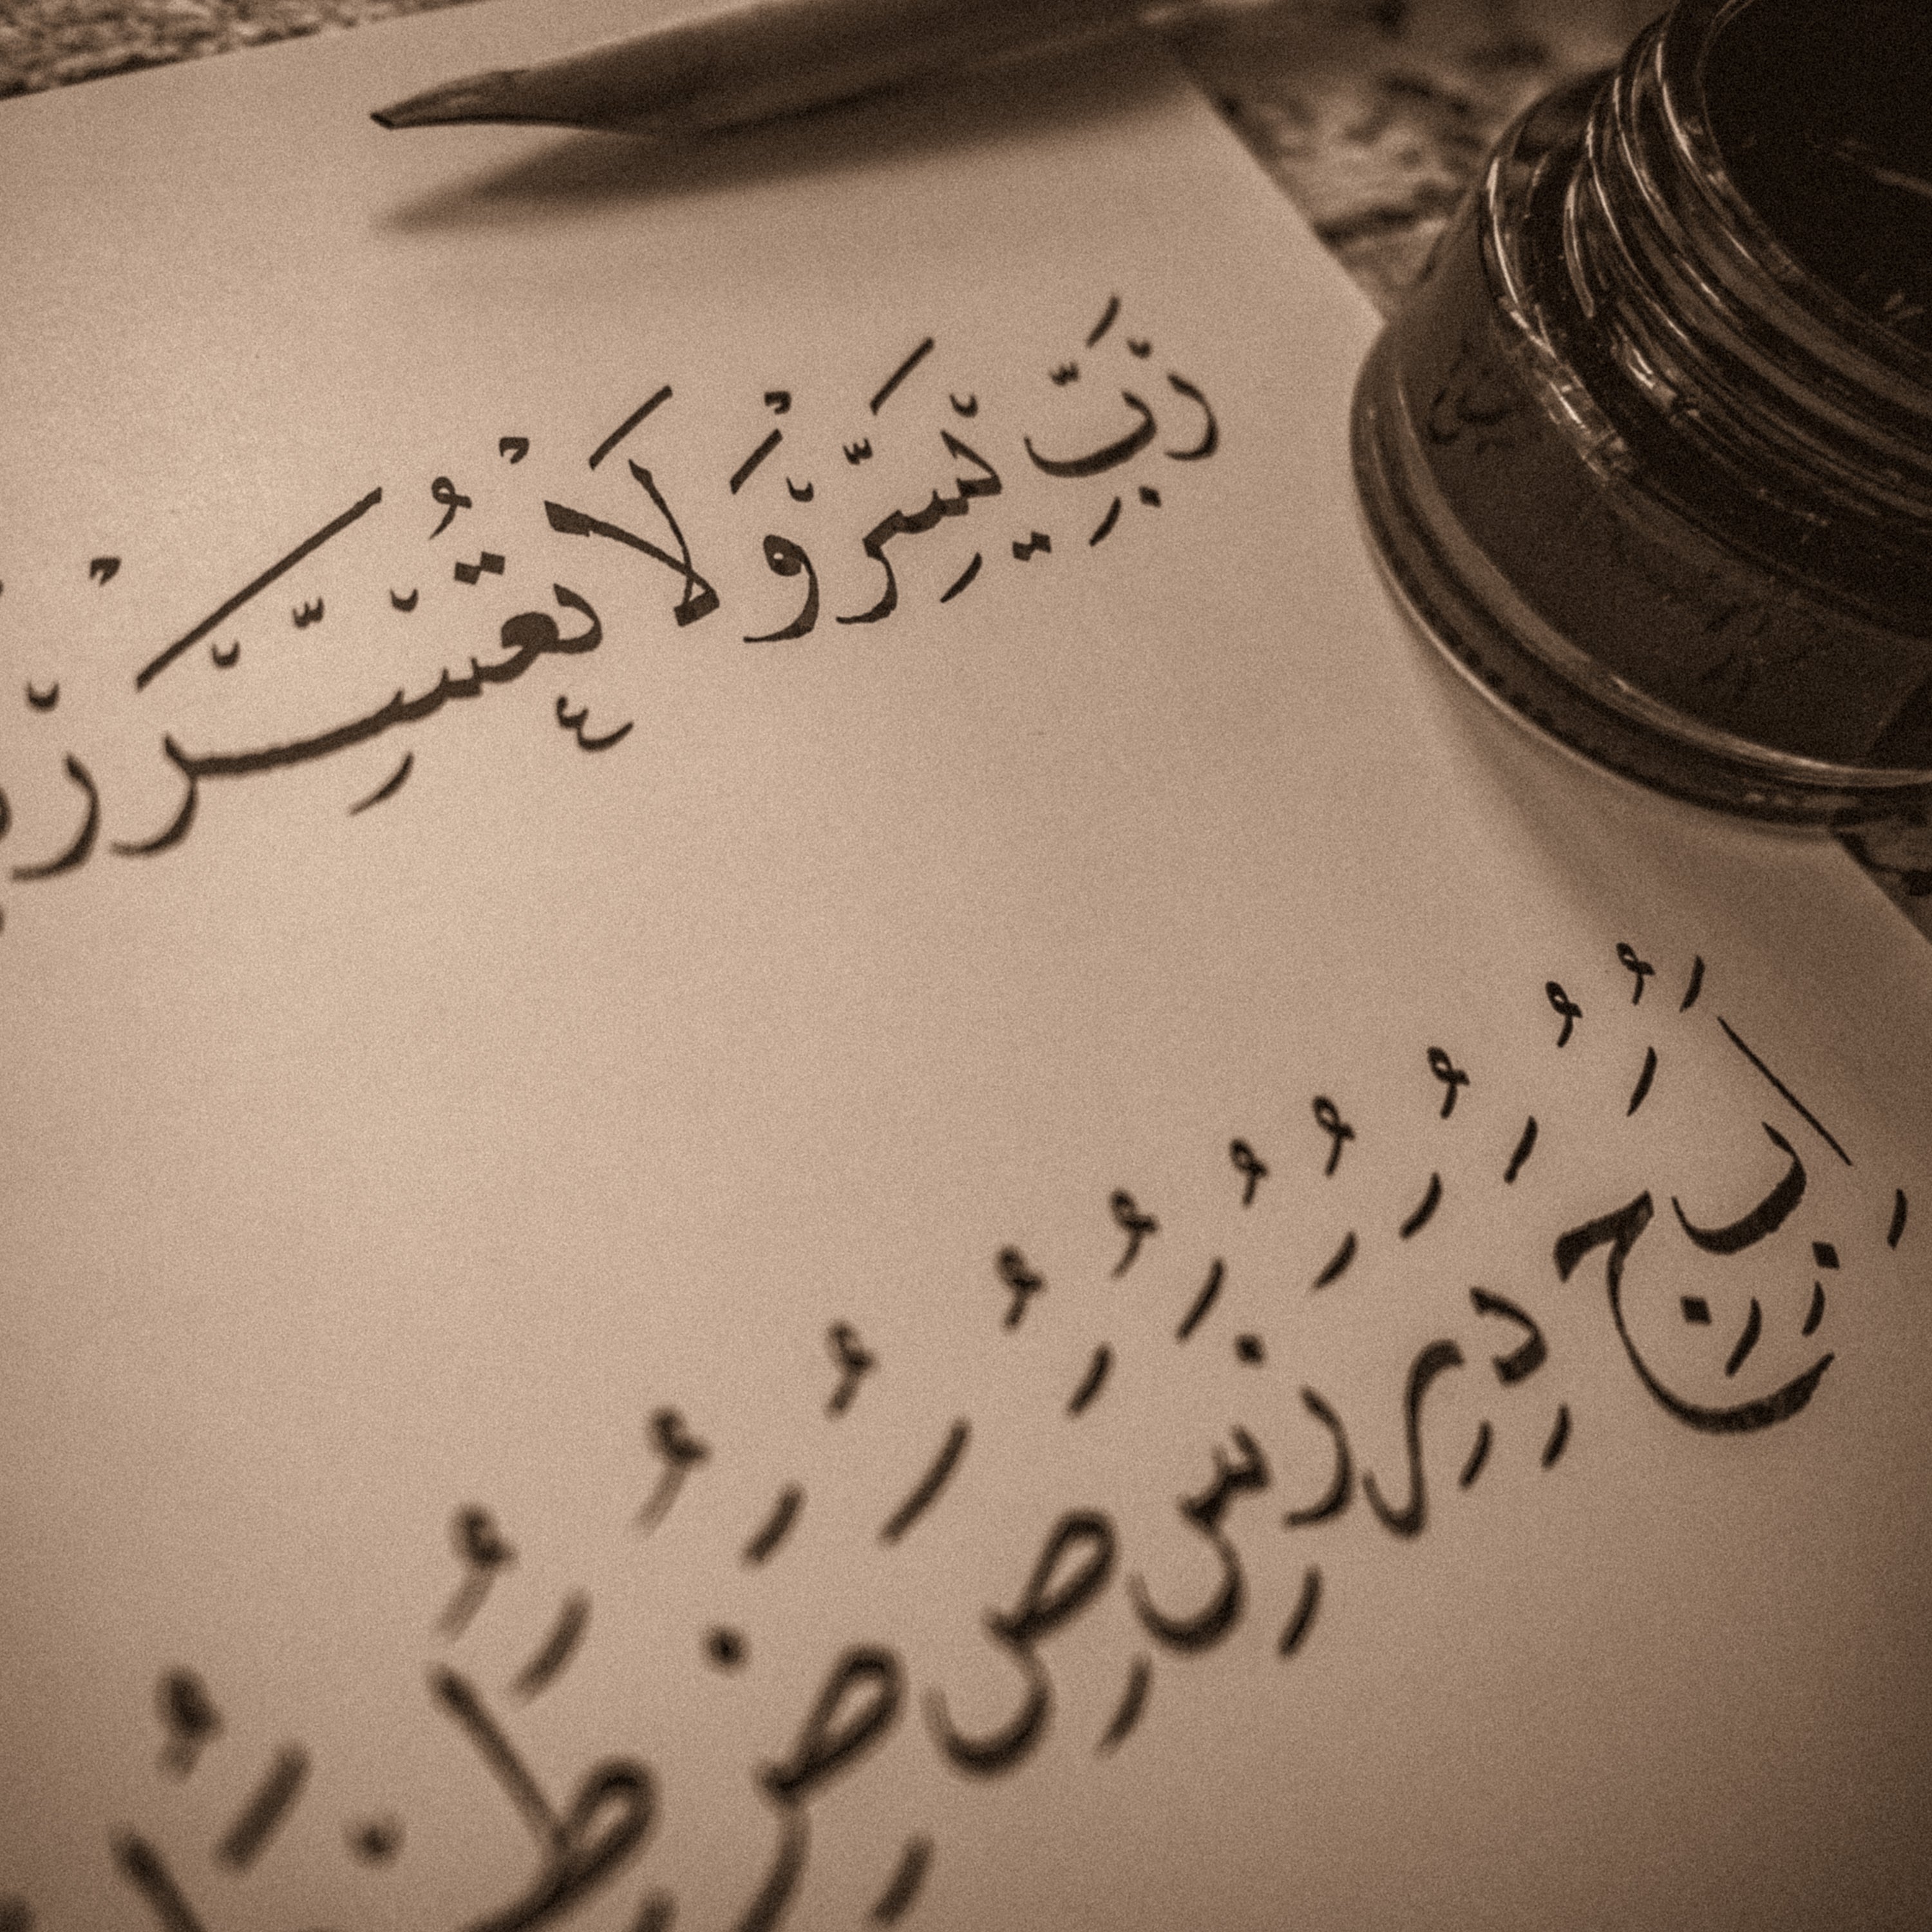 رَبِّ يَسِّرْ وَلَا تُعَسِّرْ
ا ب ج د ر ز س ص ض ط